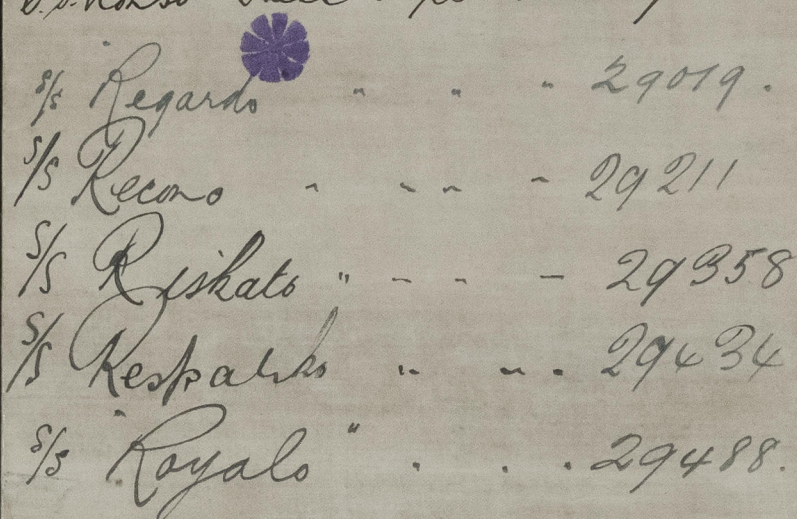 S/S "Regardo " " " 29019.
S/S Recono " " " " 29211
S/S Riskato " - - - 29358
S/S " " . 29434
S/S "Royalo" . . . 29488.